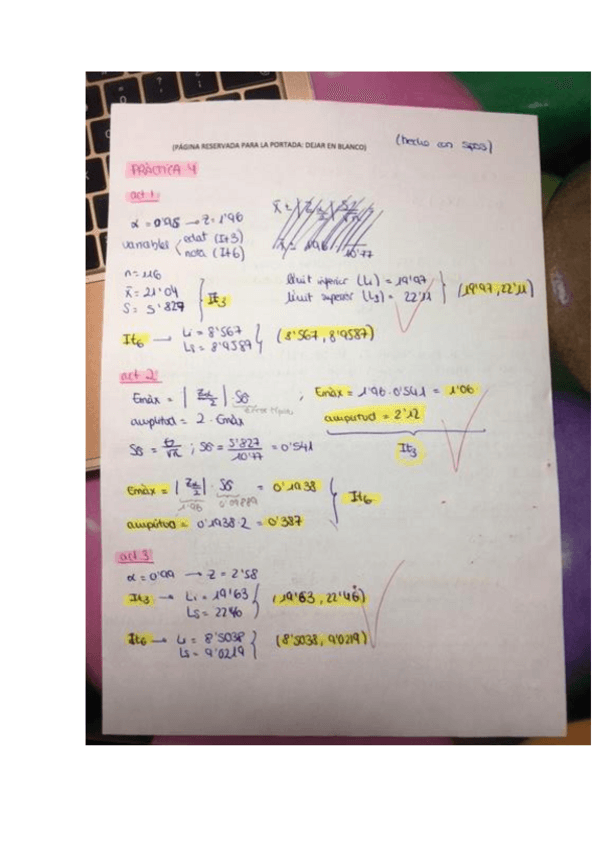 (PÁGINA RESERVADA PARA LA PORTADA: DEJAR EN BLANCO)
(hecho con SPSS)
PRÀCTICA 4
act 1
α = 0'95 → Z = 1'96
variables edat (It3)
nota (It6)
n = 116
x̄ = 21'04
S = 5'827
It3
límit inferior (Li) = 19'97
límit superior (Ls) = 22'11
(19'97, 22'11)
It6 → Li = 8'567
Ls = 8'9587
(8'567, 8'9587)
act 2
Emàx = |Zα/2| · Sē
error típic
; Emàx = 1'96 · 0'541 = 1'06
amplitud = 2 · Emàx
amplitud = 2'12
It3
; Sē = 5'827/10'77 = 0'541
Emàx = |Zα/2| · Sē = 0'1938
1'96 0'09889
It6
amplitud = 0'1938 · 2 = 0'387
act 3
α = 0'99 → Z = 2'58
It3 → Li = 19'63
Ls = 22'46
(19'63, 22'46)
It6 → Li = 8'5038
Ls = 9'0219
(8'5038, 9'0219)